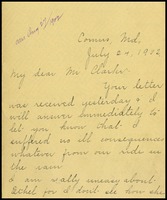 Comus, Md.
July 24, 1902
My dear Mr Clarke:
Your letter
was received yesterday & I
will answer immediately to
let you know that I
suffered no ill consequences
whatever from our ride in
the rain.
I am really uneasy about
Ethel for I don't see how she